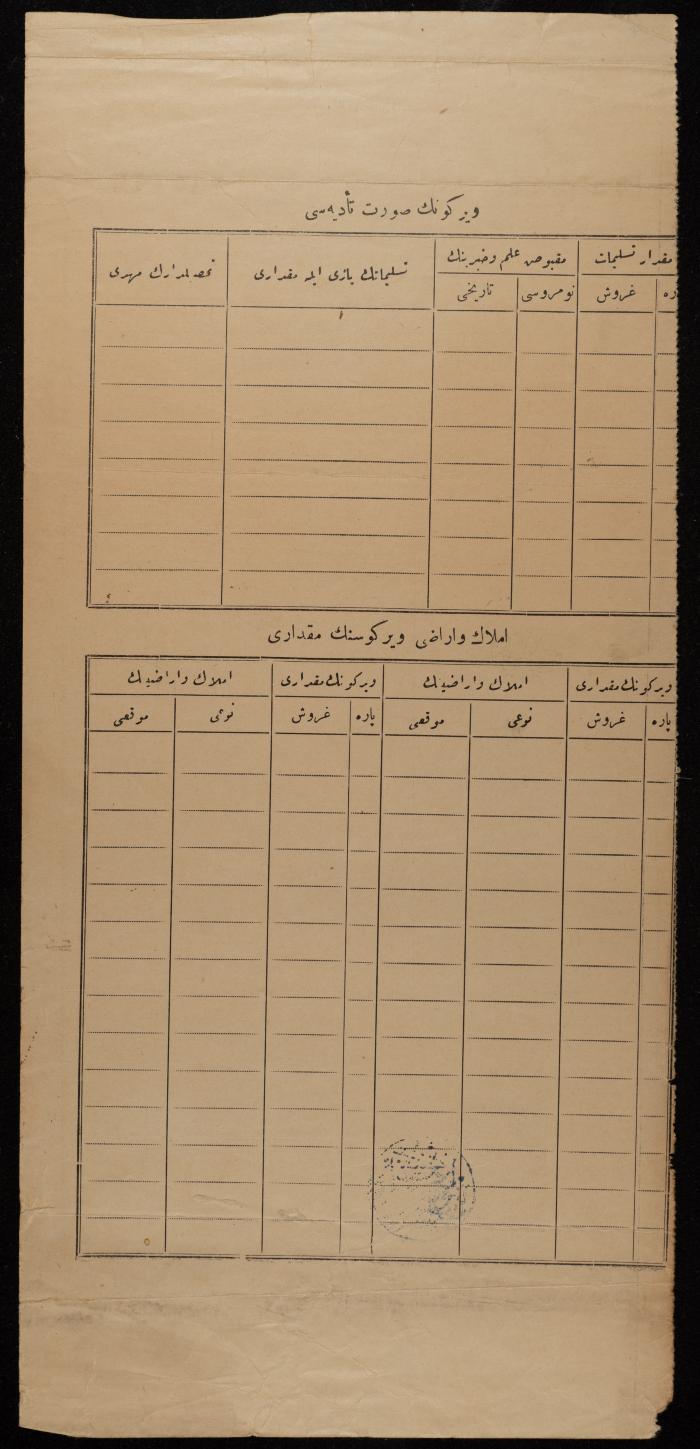 ویركونك صورت تأدیه‌سی
مقدار تسلیمات
مقبوض علم وخبرینك
تسلیماتك یازی ایله مقداری
تحصیلدارك مهری
پاره
غروش
نومروسی
تاریخی
املاك واراضی ویركوسنك مقداری
ویركونك مقداری
املاك واراضینك
ویركونك مقداری
املاك واراضینك
پاره
غروش
نوعی
موقعی
پاره
غروش
نوعی
موقعی